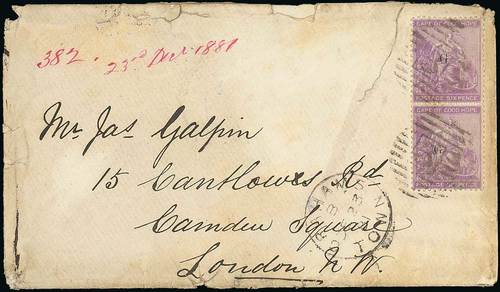 382.
23rd Nov 1881
CAPE OF GOOD HOPE
POSTAGE SIX PENCE
CAPE OF GOOD HOPE
Mr Jas Galpin
15 Cantlowes Rd
Camden Square
London N.W.
TOWN